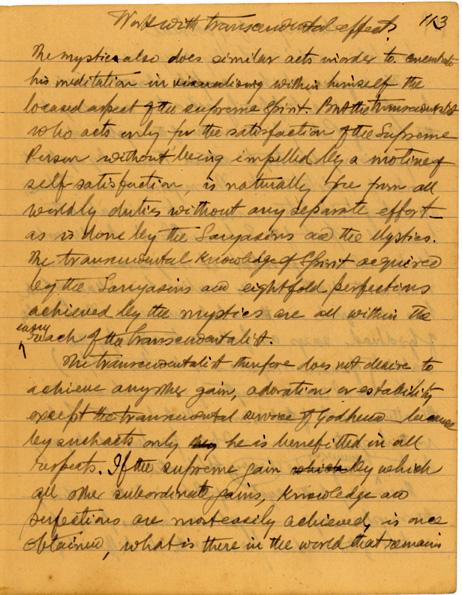 Work with transcendental effect. 113
The mystics also does similar acts in order to concentrate
his meditation in visualising within himself the
located aspect of the supreme spirit. But the transcendentalist
who acts only for the satisfaction of the Supreme
Person without being impelled by a motive of
self satisfaction, is naturally free from all
worldly duties without any separate effort_
as is done by the Sanyasins and the Mystics.
The transcendental knowledge of Spirit acquired
by the Sanyasins and eightfold perfections
achieved by the mystics are all within the
easy
reach of the transcendentalist.
The transcendentalist therefore does not desire to
achieve any other gain, adoration or estability
except the transcendental service of Godhead because
by such acts only he is benefitted in all
respects. If the supreme gain which by which
all other subordinate gains, knowledge and
perfections are most easily achieved, is once
obtained, what is there in the world that remains